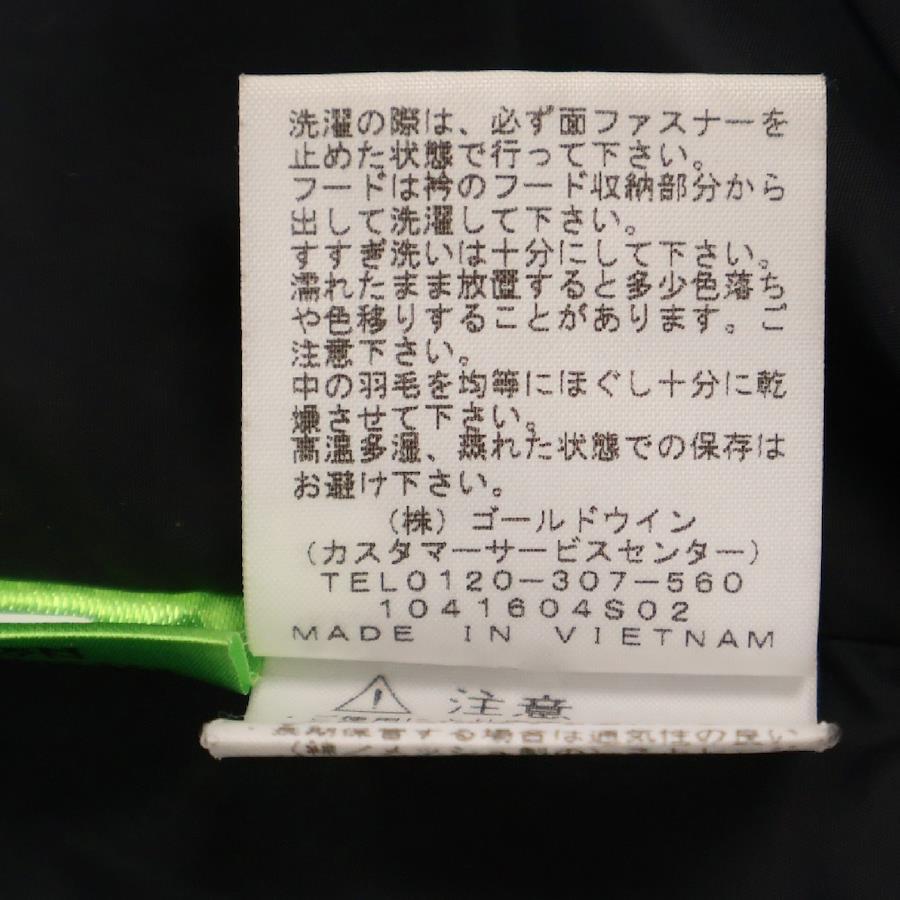 洗濯の際は、必ず面ファスナーを
止めた状態で行って下さい。
フードは衿のフード収納部分から
出して洗濯して下さい。
すすぎ洗いは十分にして下さい。
濡れたまま放置すると多少色落ち
や色移りすることがあります。ご
注意下さい。
中の羽毛を均等にほぐし十分に乾
燥させて下さい。
高温多湿、蒸れた状態での保存は
お避け下さい。
(株)ゴールドウイン
(カスタマーサービスセンター)
TEL0120-307-560
1041604S02
MADE IN VIETNAM
注意
長期保管する場合は通気性の良い